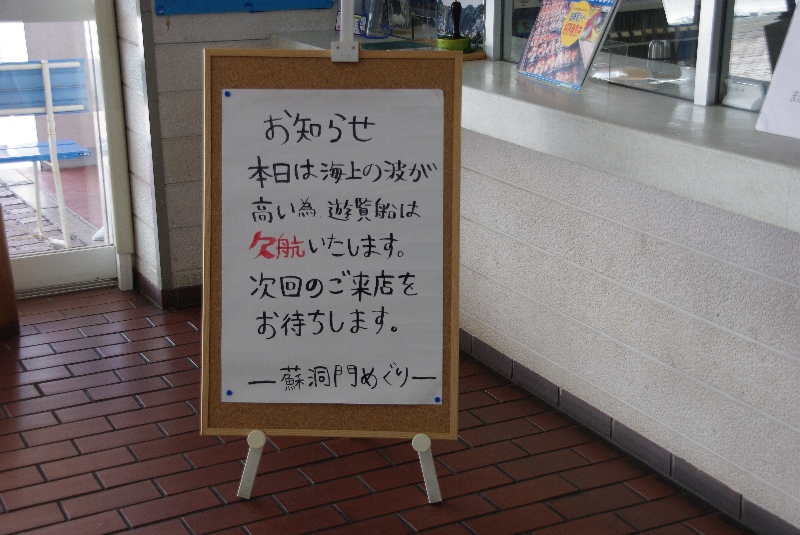 お知らせ
本日は海上の波が
高い為 遊覧船は
欠航いたします。
次回のご来店を
お待ちします。
―蘇洞門めぐり―